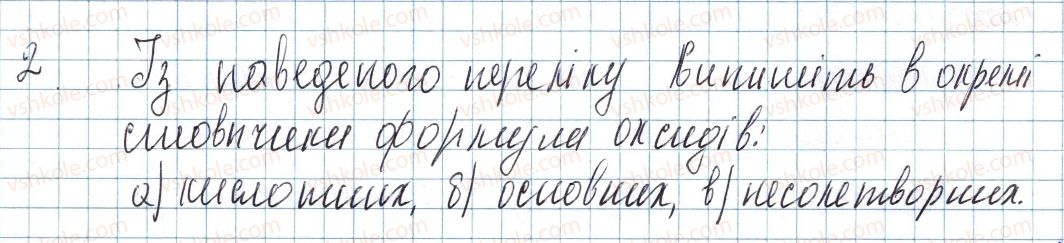 2. Із наведеного переліку випишіть в окремі
стовпчики формули оксидів:
а) кислотних, б) основних, в) несолетворних.